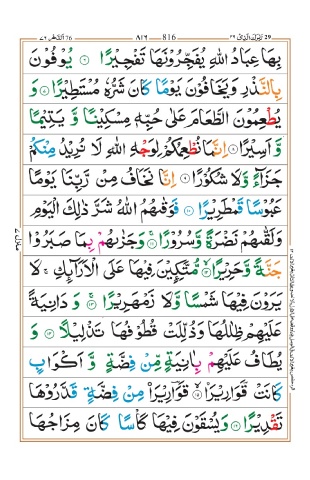 بِهَا عِبَادُ اللّٰهِ يُفَجِّرُوْنَهَا تَفْجِيْرًا ۶ يُوْفُوْنَ
بِالنَّذْرِ وَيَخَافُوْنَ يَوْمًا كَانَ شَرُّهٗ مُسْتَطِيْرًا ۷ وَ
يُطْعِمُوْنَ الطَّعَامَ عَلٰى حُبِّهٖ مِسْكِيْنًا وَّ يَتِيْمًا
وَّ اَسِيْرًا ۸ اِنَّمَا نُطْعِمُكُمْ لِوَجْهِ اللّٰهِ لَا نُرِيْدُ مِنْكُمْ
جَزَآءً وَّلَا شُكُوْرًا ۹ اِنَّا نَخَافُ مِنْ رَّبِّنَا يَوْمًا
عَبُوْسًا قَمْطَرِيْرًا ۱۰ فَوَقٰىهُمُ اللّٰهُ شَرَّ ذٰلِكَ الْيَوْمِ
وَلَقّٰىهُمْ نَضْرَةً وَّ سُرُوْرًا ۱۱ وَجَزٰىهُمْ بِمَا صَبَرُوْا
جَنَّةً وَّحَرِيْرًا ۱۲ مُّتَّكِـِٕيْنَ فِيْهَا عَلَى الْاَرَآئِكِ ۚ لَا
يَرَوْنَ فِيْهَا شَمْسًا وَّلَا زَمْهَرِيْرًا ۱۳ وَ دَانِيَةً
عَلَيْهِمْ ظِلٰلُهَا وَذُلِّلَتْ قُطُوْفُهَا تَذْلِيْلًا ۱۴ وَ
يُطَافُ عَلَيْهِمْ بِاٰنِيَةٍ مِّنْ فِضَّةٍ وَّ اَكْوَابٍ
كَانَتْ قَوَارِيْرَا۟ ۱۵ قَوَارِيْرَا۟ مِنْ فِضَّةٍ قَدَّرُوْهَا
تَقْدِيْرًا ۱۶ وَيُسْقَوْنَ فِيْهَا كَاْسًا كَانَ مِزَاجُهَا